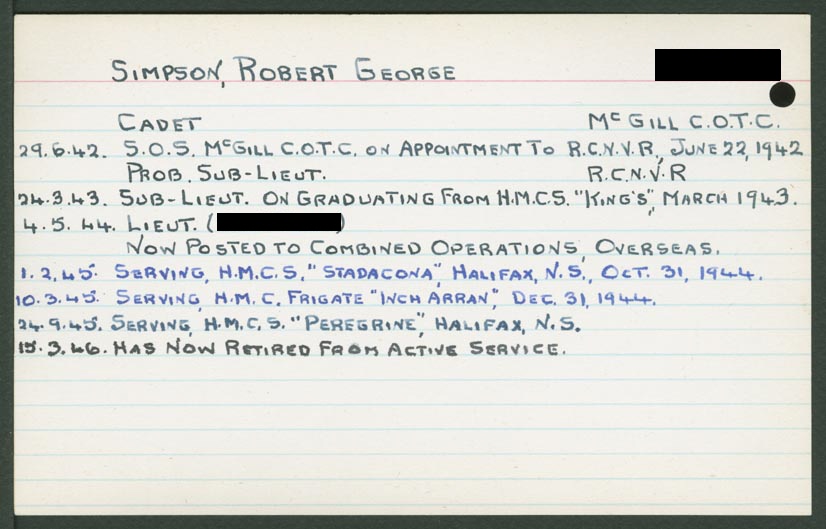 SIMPSON, ROBERT GEORGE
CADET McGILL C.O.T.C.
29.6.42. S.O.S. McGILL C.O.T.C. ON APPOINTMENT TO R.C.N.V.R., JUNE 22, 1942
PROB. SUB-LIEUT. R.C.N.V.R
24.3.43. SUB-LIEUT. ON GRADUATING FROM H.M.C.S. "KING'S", MARCH 1943.
4.5.44. LIEUT. ( )
NOW POSTED TO COMBINED OPERATIONS, OVERSEAS.
1.2.45. SERVING, H.M.C.S. "STADACONA", HALIFAX, N.S., OCT. 31, 1944.
10.3.45. SERVING, H.M.C. FRIGATE "INCH ARRAN", DEC. 31, 1944.
24.9.45. SERVING, H.M.C.S. "PEREGRINE", HALIFAX, N.S.
15.3.46. HAS NOW RETIRED FROM ACTIVE SERVICE.